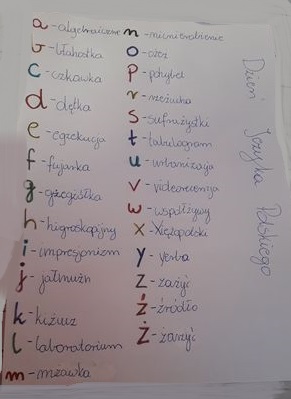 a - algebraiczne
b - błahostka
c - czkawka
d - dętka
e - egzekucja
f - fujarka
g - gżegżółka
h - higroskopijny
i - impresjonizm
j - jałmużn
k - kiziuz
l - laboratorium
m - mżawka
n - niciniezdzienie
o - ożóg
p - pohybel
r - rzeżucha
s - sufrażystki
t - tabulogram
u - urbanizacja
v - videorecenzja
w - współżywy
x - Xiężopolski
y - yerba
z - zażyć
ź - źródło
ż - żarzyć
Dzień Języka Polskiego